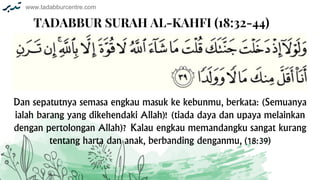 تدبر www.tadabburcentre.com
TADABBUR SURAH AL-KAHFI (18:32-44)
وَلَوْلَآ إِذْ دَخَلْتَ جَنَّتَكَ قُلْتَ مَا شَآءَ ٱللَّهُ لَا قُوَّةَ إِلَّا بِٱللَّهِ ۚ إِن تَرَنِ
أَنَا۠ أَقَلَّ مِنكَ مَالًا وَوَلَدًا ٣٩
Dan sepatutnya semasa engkau masuk ke kebunmu, berkata: (Semuanya
ialah barang yang dikehendaki Allah)! (tiada daya dan upaya melainkan
dengan pertolongan Allah)? Kalau engkau memandangku sangat kurang
tentang harta dan anak, berbanding denganmu, (18:39)